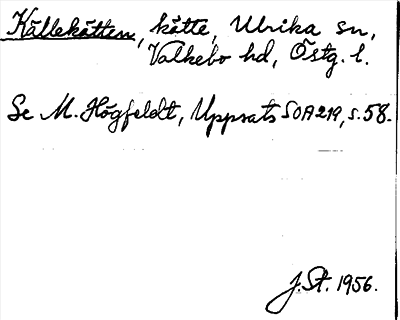 Källekätten, kätte, Ulrika sn,
Valkebo hd, Östg. l.
Se M. Högfeldt, Uppsats SOA 219, s. 58.
J. St. 1956.